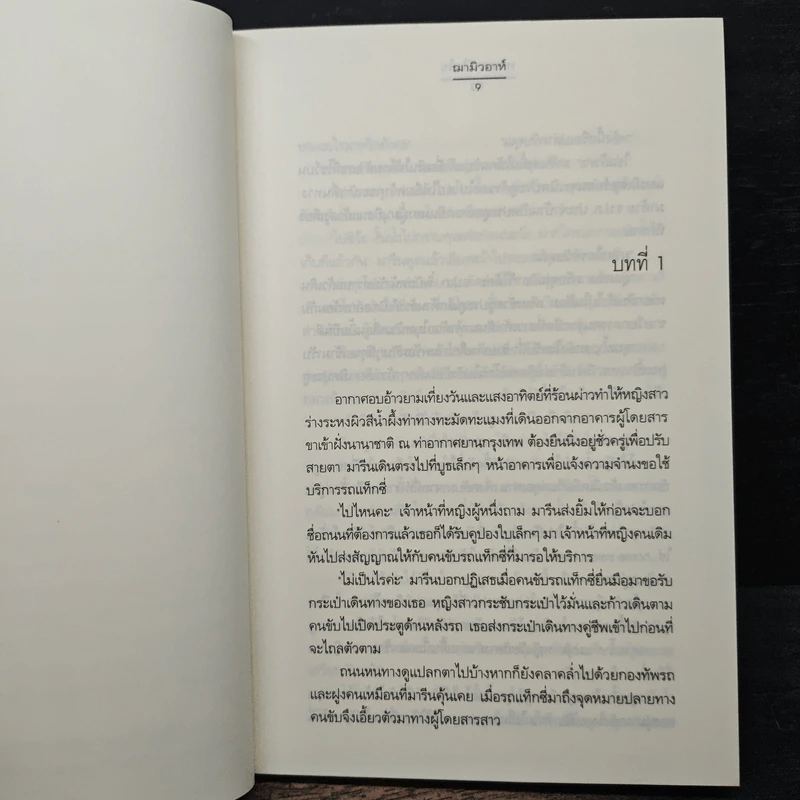 ฌามิวอาห์
9
บทที่ 1
อากาศอบอ้าวยามเที่ยงวันและแสงอาทิตย์ที่ร้อนผ่าวทำให้หญิงสาว
ร่างระหงผิวสีน้ำผึ้งท่าทางทะมัดทะแมงที่เดินออกจากอาคารผู้โดยสาร
ขาเข้าฝั่งนานาชาติ ณ ท่าอากาศยานกรุงเทพ ต้องยืนนิ่งอยู่ชั่วครู่เพื่อปรับ
สายตา มารีนเดินตรงไปที่บูธเล็กๆ หน้าอาคารเพื่อแจ้งความจำนงขอใช้
บริการรถแท็กซี่
"ไปไหนคะ" เจ้าหน้าที่หญิงผู้หนึ่งถาม มารีนส่งยิ้มให้ก่อนจะบอก
ชื่อถนนที่ต้องการแล้วเธอก็ได้รับคูปองใบเล็กๆ มา เจ้าหน้าที่หญิงคนเดิม
หันไปส่งสัญญาณให้กับคนขับรถแท็กซี่ที่มารอให้บริการ
"ไม่เป็นไรค่ะ" มารีนบอกปฏิเสธเมื่อคนขับรถแท็กซี่ยื่นมือมาขอรับ
กระเป๋าเดินทางของเธอ หญิงสาวกระชับกระเป๋าไว้มั่นและก้าวเดินตาม
คนขับไปเปิดประตูด้านหลังรถ เธอส่งกระเป๋าเดินทางคู่ชีพเข้าไปก่อนที่
จะไถลตัวตาม
ถนนหนทางดูแปลกตาไปบ้างหากก็ยังคลาคล่ำไปด้วยกองทัพรถ
และฝูงคนเหมือนที่มารีนคุ้นเคย เมื่อรถแท็กซี่มาถึงจุดหมายปลายทาง
คนขับจึงเอี้ยวตัวมาทางผู้โดยสารสาว